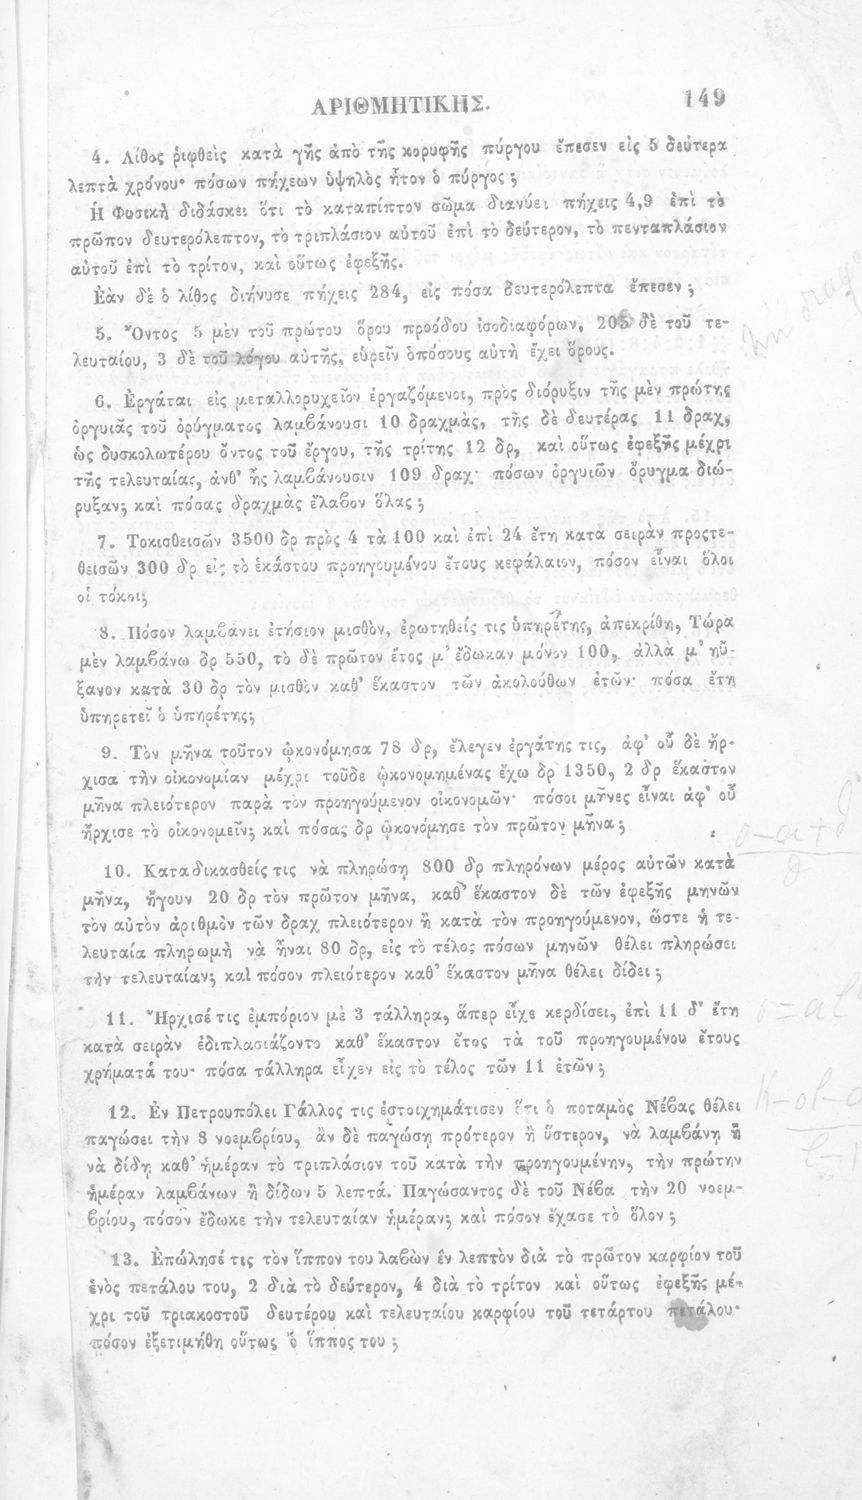 ΑΡΙΘΜΗΤΙΚΗΣ. 149
4. Λίθος ῥιφθεὶς κατὰ γῆς ἀπὸ τῆς κορυφῆς πύργου ἔπεσεν εἰς 5 δεύτερα
λεπτὰ χρόνου· πόσων πήχεων ὑψηλὸς ἦτον ὁ πύργος;
Ἡ Φυσικὴ διδάσκει ὅτι τὸ καταπίπτον σῶμα διανύει πήχεις 4,9 ἐπὶ τὸ
πρῶτον δευτερόλεπτον, τὸ τριπλάσιον αὐτοῦ ἐπὶ τὸ δεύτερον, τὸ πενταπλάσιον
αὐτοῦ ἐπὶ τὸ τρίτον, καὶ οὕτως ἐφεξῆς.
Ἐὰν δὲ ὁ λίθος διήνυσε πήχεις 284, εἰς πόσα δευτερόλεπτα ἔπεσεν;
5. Ὄντος 5 μὲν τοῦ πρώτου ὅρου προόδου ἰσοδιαφόρων, 205 δὲ τοῦ τε-
λευταίου, 3 δὲ τοῦ λόγου αὐτῆς, εὑρεῖν ὁπόσους αὐτὴ ἔχει ὅρους.
6. Ἐργάται εἰς μεταλλορυχεῖον ἐργαζόμενοι, πρὸς διόρυξιν τῆς μὲν πρώτης
ὀργυιᾶς τοῦ ὀρύγματος λαμβάνουσι 10 δραχμὰς, τῆς δὲ δευτέρας 11 δραχ,
ὡς δυσκολωτέρου ὄντος τοῦ ἔργου, τῆς τρίτης 12 δρ, καὶ οὕτως ἐφεξῆς μέχρι
τῆς τελευταίας, ἀνθ' ἧς λαμβάνουσιν 109 δραχ· πόσων ὀργυιῶν ὄρυγμα διώ-
ρυξαν; καὶ πόσας δραχμὰς ἔλαβον ὅλας;
7. Τοκισθεισῶν 3500 δρ πρὸς 4 τὰ 100 καὶ ἐπὶ 24 ἔτη κατὰ σειρὰν προςτε-
θεισῶν 300 δρ εἰς τὸ ἑκάστου προηγουμένου ἔτους κεφάλαιον, πόσον εἶναι ὅλοι
οἱ τόκοι;
8. Πόσον λαμβάνει ἐτήσιον μισθὸν, ἐρωτηθείς τις ὑπηρέτης, ἀπεκρίθη, Τώρα
μὲν λαμβάνω δρ 550, τὸ δὲ πρῶτον ἔτος μ' ἔδωκαν μόνον 100, ἀλλὰ μ' ηὔ-
ξανον κατὰ 30 δρ τὸν μισθὸν καθ' ἕκαστον τῶν ἀκολούθων ἐτῶν· πόσα ἔτη
ὑπηρετεῖ ὁ ὑπηρέτης;
9. Τὸν μῆνα τοῦτον ᾠκονόμησα 78 δρ, ἔλεγεν ἐργάτης τις, ἀφ' οὗ δὲ ἤρ-
χισα τὴν οἰκονομίαν μέχρι τοῦδε ᾠκονομημένας ἔχω δρ 1350, 2 δρ ἕκαστον
μῆνα πλειότερον παρὰ τὸν προηγούμενον οἰκονομῶν· πόσοι μῆνες εἶναι ἀφ' οὗ
ἤρχισε τὸ οἰκονομεῖν; καὶ πόσας δρ ᾠκονόμησε τὸν πρῶτον μῆνα;
10. Καταδικασθείς τις νὰ πληρώσῃ 800 δρ πληρόνων μέρος αὐτῶν κατὰ
μῆνα, ἤγουν 20 δρ τὸν πρῶτον μῆνα, καθ' ἕκαστον δὲ τῶν ἐφεξῆς μηνῶν
τὸν αὐτὸν ἀριθμὸν τῶν δραχ πλειότερον ἢ κατὰ τὸν προηγούμενον, ὥστε ἡ τε-
λευταία πληρωμὴ νὰ ἦναι 80 δρ, εἰς τὸ τέλος πόσων μηνῶν θέλει πληρώσει
τὴν τελευταίαν; καὶ πόσον πλειότερον καθ' ἕκαστον μῆνα θέλει δίδει;
11. Ἤρχισέ τις ἐμπόριον μὲ 3 τάλληρα, ἅπερ εἶχε κερδίσει, ἐπὶ 11 δ' ἔτη
κατὰ σειρὰν ἐδιπλασιάζοντο καθ' ἕκαστον ἔτος τὰ τοῦ προηγουμένου ἔτους
χρήματά του· πόσα τάλληρα εἶχεν εἰς τὸ τέλος τῶν 11 ἐτῶν;
12. Ἐν Πετρουπόλει Γάλλος τις ἐστοιχημάτισεν ὅτι ὁ ποταμὸς Νέβας θέλει
παγώσει τὴν 8 νοεμβρίου, ἂν δὲ παγώσῃ πρότερον ἢ ὕστερον, νὰ λαμβάνῃ ἢ
νὰ δίδῃ καθ' ἡμέραν τὸ τριπλάσιον τοῦ κατὰ τὴν προηγουμένην, τὴν πρώτην
ἡμέραν λαμβάνων ἢ δίδων 5 λεπτά. Παγώσαντος δὲ τοῦ Νέβα τὴν 20 νοεμ-
βρίου, πόσον ἔδωκε τὴν τελευταίαν ἡμέραν; καὶ πόσον ἔχασε τὸ ὅλον;
13. Ἐπώλησέ τις τὸν ἵππον του λαβὼν ἓν λεπτὸν διὰ τὸ πρῶτον καρφίον τοῦ
ἑνὸς πετάλου του, 2 διὰ τὸ δεύτερον, 4 διὰ τὸ τρίτον καὶ οὕτως ἐφεξῆς μέ-
χρι τοῦ τριακοστοῦ δευτέρου καὶ τελευταίου καρφίου τοῦ τετάρτου πετάλου·
πόσον ἐξετιμήθη οὕτως ὁ ἵππος του;